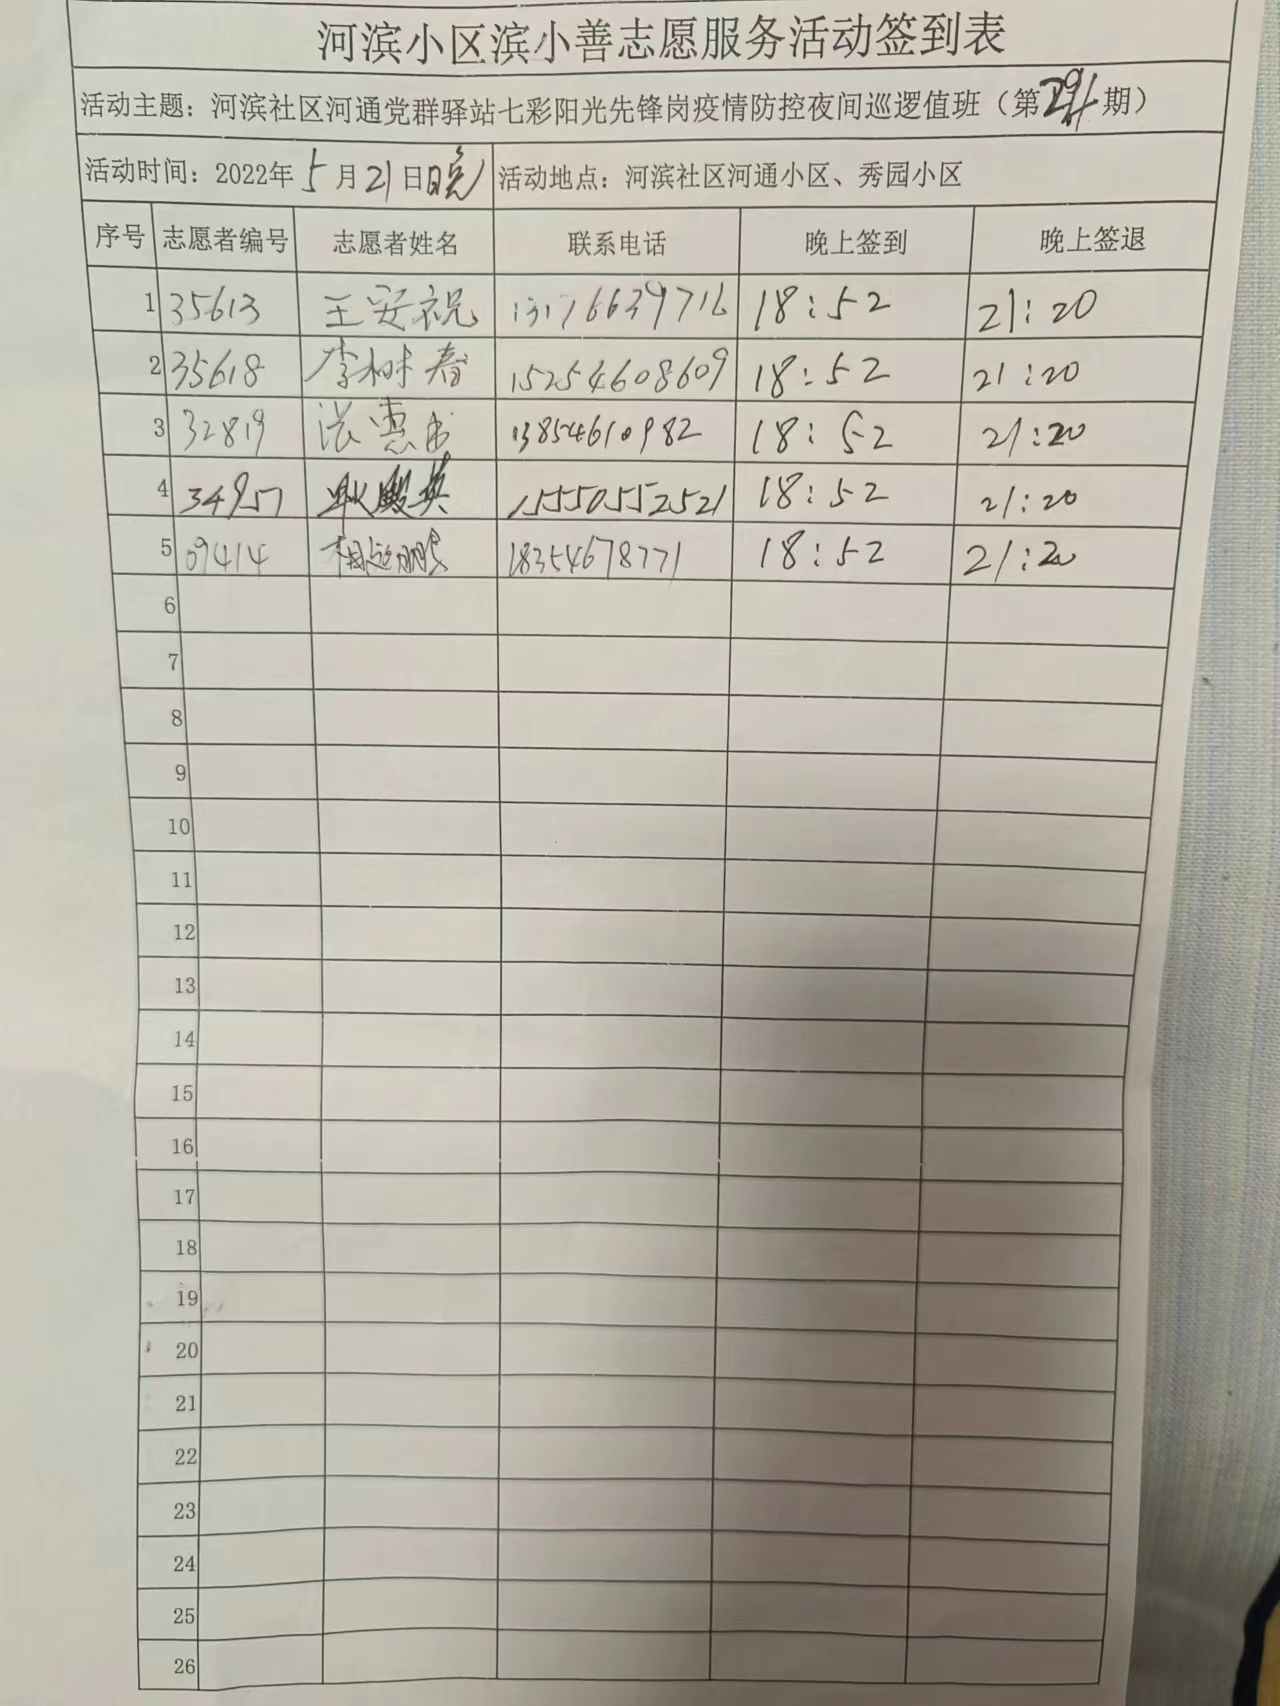 河滨小区滨小善志愿服务活动签到表
活动主题：河滨社区河通党群驿站七彩阳光先锋岗疫情防控夜间巡逻值班（第 期）
活动时间：2022年5月21日晚 活动地点：河滨社区河通小区、秀园小区
序号 志愿者编号 志愿者姓名 联系电话 晚上签到 晚上签退
1 35613 王安祝 13176639716 18:52 21:20
2 35618 李树春 15254608609 18:52 21:20
3 32819 13854610982 18:52 21:20
4 34957 耿殿英 15550552521 18:52 21:20
5 09414 18354678771 18:52 21:20
6
7
8
9
10
11
12
13
14
15
16
17
18
19
20
21
22
23
24
25
26